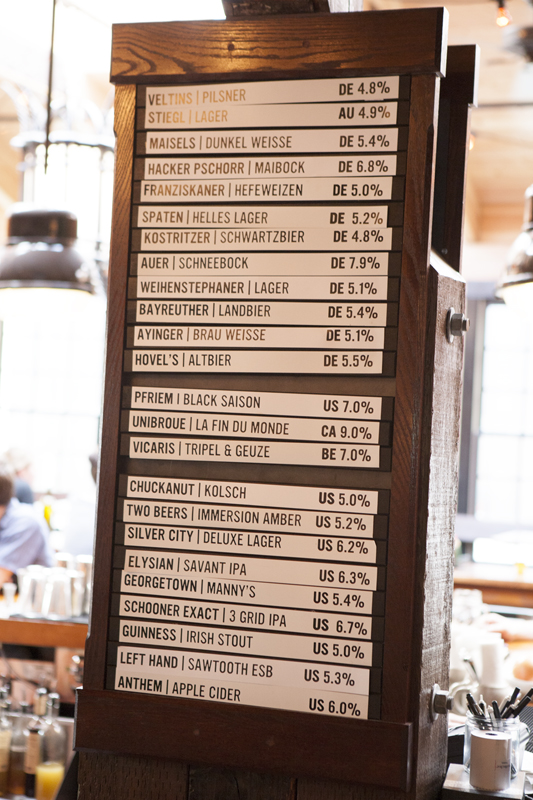 VELTINS | PILSNER DE 4.8%
STIEGL | LAGER AU 4.9%
MAISELS | DUNKEL WEISSE DE 5.4%
HACKER PSCHORR | MAIBOCK DE 6.8%
FRANZISKANER | HEFEWEIZEN DE 5.0%
SPATEN | HELLES LAGER DE 5.2%
KOSTRITZER | SCHWARTZBIER DE 4.8%
AUER | SCHNEEBOCK DE 7.9%
WEIHENSTEPHANER | LAGER DE 5.1%
BAYREUTHER | LANDBIER DE 5.4%
AYINGER | BRAU WEISSE DE 5.1%
HOVEL'S | ALTBIER DE 5.5%
PFRIEM | BLACK SAISON US 7.0%
UNIBROUE | LA FIN DU MONDE CA 9.0%
VICARIS | TRIPEL & GEUZE BE 7.0%
CHUCKANUT | KOLSCH US 5.0%
TWO BEERS | IMMERSION AMBER US 5.2%
SILVER CITY | DELUXE LAGER US 6.2%
ELYSIAN | SAVANT IPA US 6.3%
GEORGETOWN | MANNY'S US 5.4%
SCHOONER EXACT | 3 GRID IPA US 6.7%
GUINNESS | IRISH STOUT US 5.0%
LEFT HAND | SAWTOOTH ESB US 5.3%
ANTHEM | APPLE CIDER US 6.0%